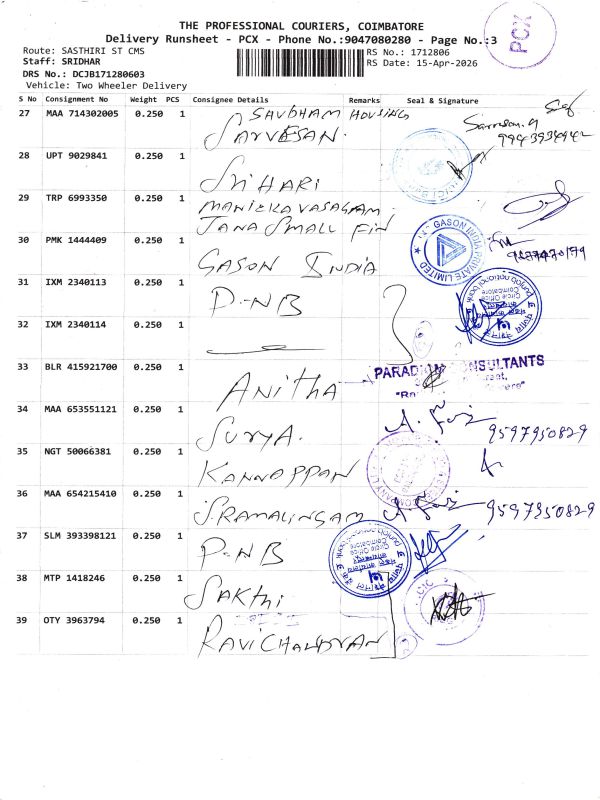 THE PROFESSIONAL COURIERS, COIMBATORE
Delivery Runsheet - PCX - Phone No.:9047080280 - Page No.:3
PCX
Route: SASTHIRI ST CMS
RS No.: 1712806
Staff: SRIDHAR
RS Date: 15-Apr-2026
DRS No.: DCJB171280603
Vehicle: Two Wheeler Delivery
S No Consignment No Weight PCS Consignee Details Remarks Seal & Signature
27 MAA 714302005 0.250 1 SHUBHAM HOUSING
SARVESAN.
28 UPT 9029841 0.250 1
SRI HARI
29 TRP 6993350 0.250 1 MANIKKAVASAGAM
JANA SMALL FIN
30 PMK 1444409 0.250 1
GASON INDIA
GASON INDIA PRIVATE LIMITED
31 IXM 2340113 0.250 1 P-NB
punjab national bank
Circle Office
Coimbatore
32 IXM 2340114 0.250 1
33 BLR 415921700 0.250 1 Anitha
CONSULTANTS
34 MAA 653551121 0.250 1 SURYA.
9597950829
35 NGT 50066381 0.250 1 KANNAPPAN
36 MAA 654215410 0.250 1 S.RAMALINGAM
9597950829
37 SLM 393398121 0.250 1 P-NB
punjab national bank
Circle Office
Coimbatore
38 MTP 1418246 0.250 1 SAKthi
39 OTY 3963794 0.250 1 RAVICHANDRAN